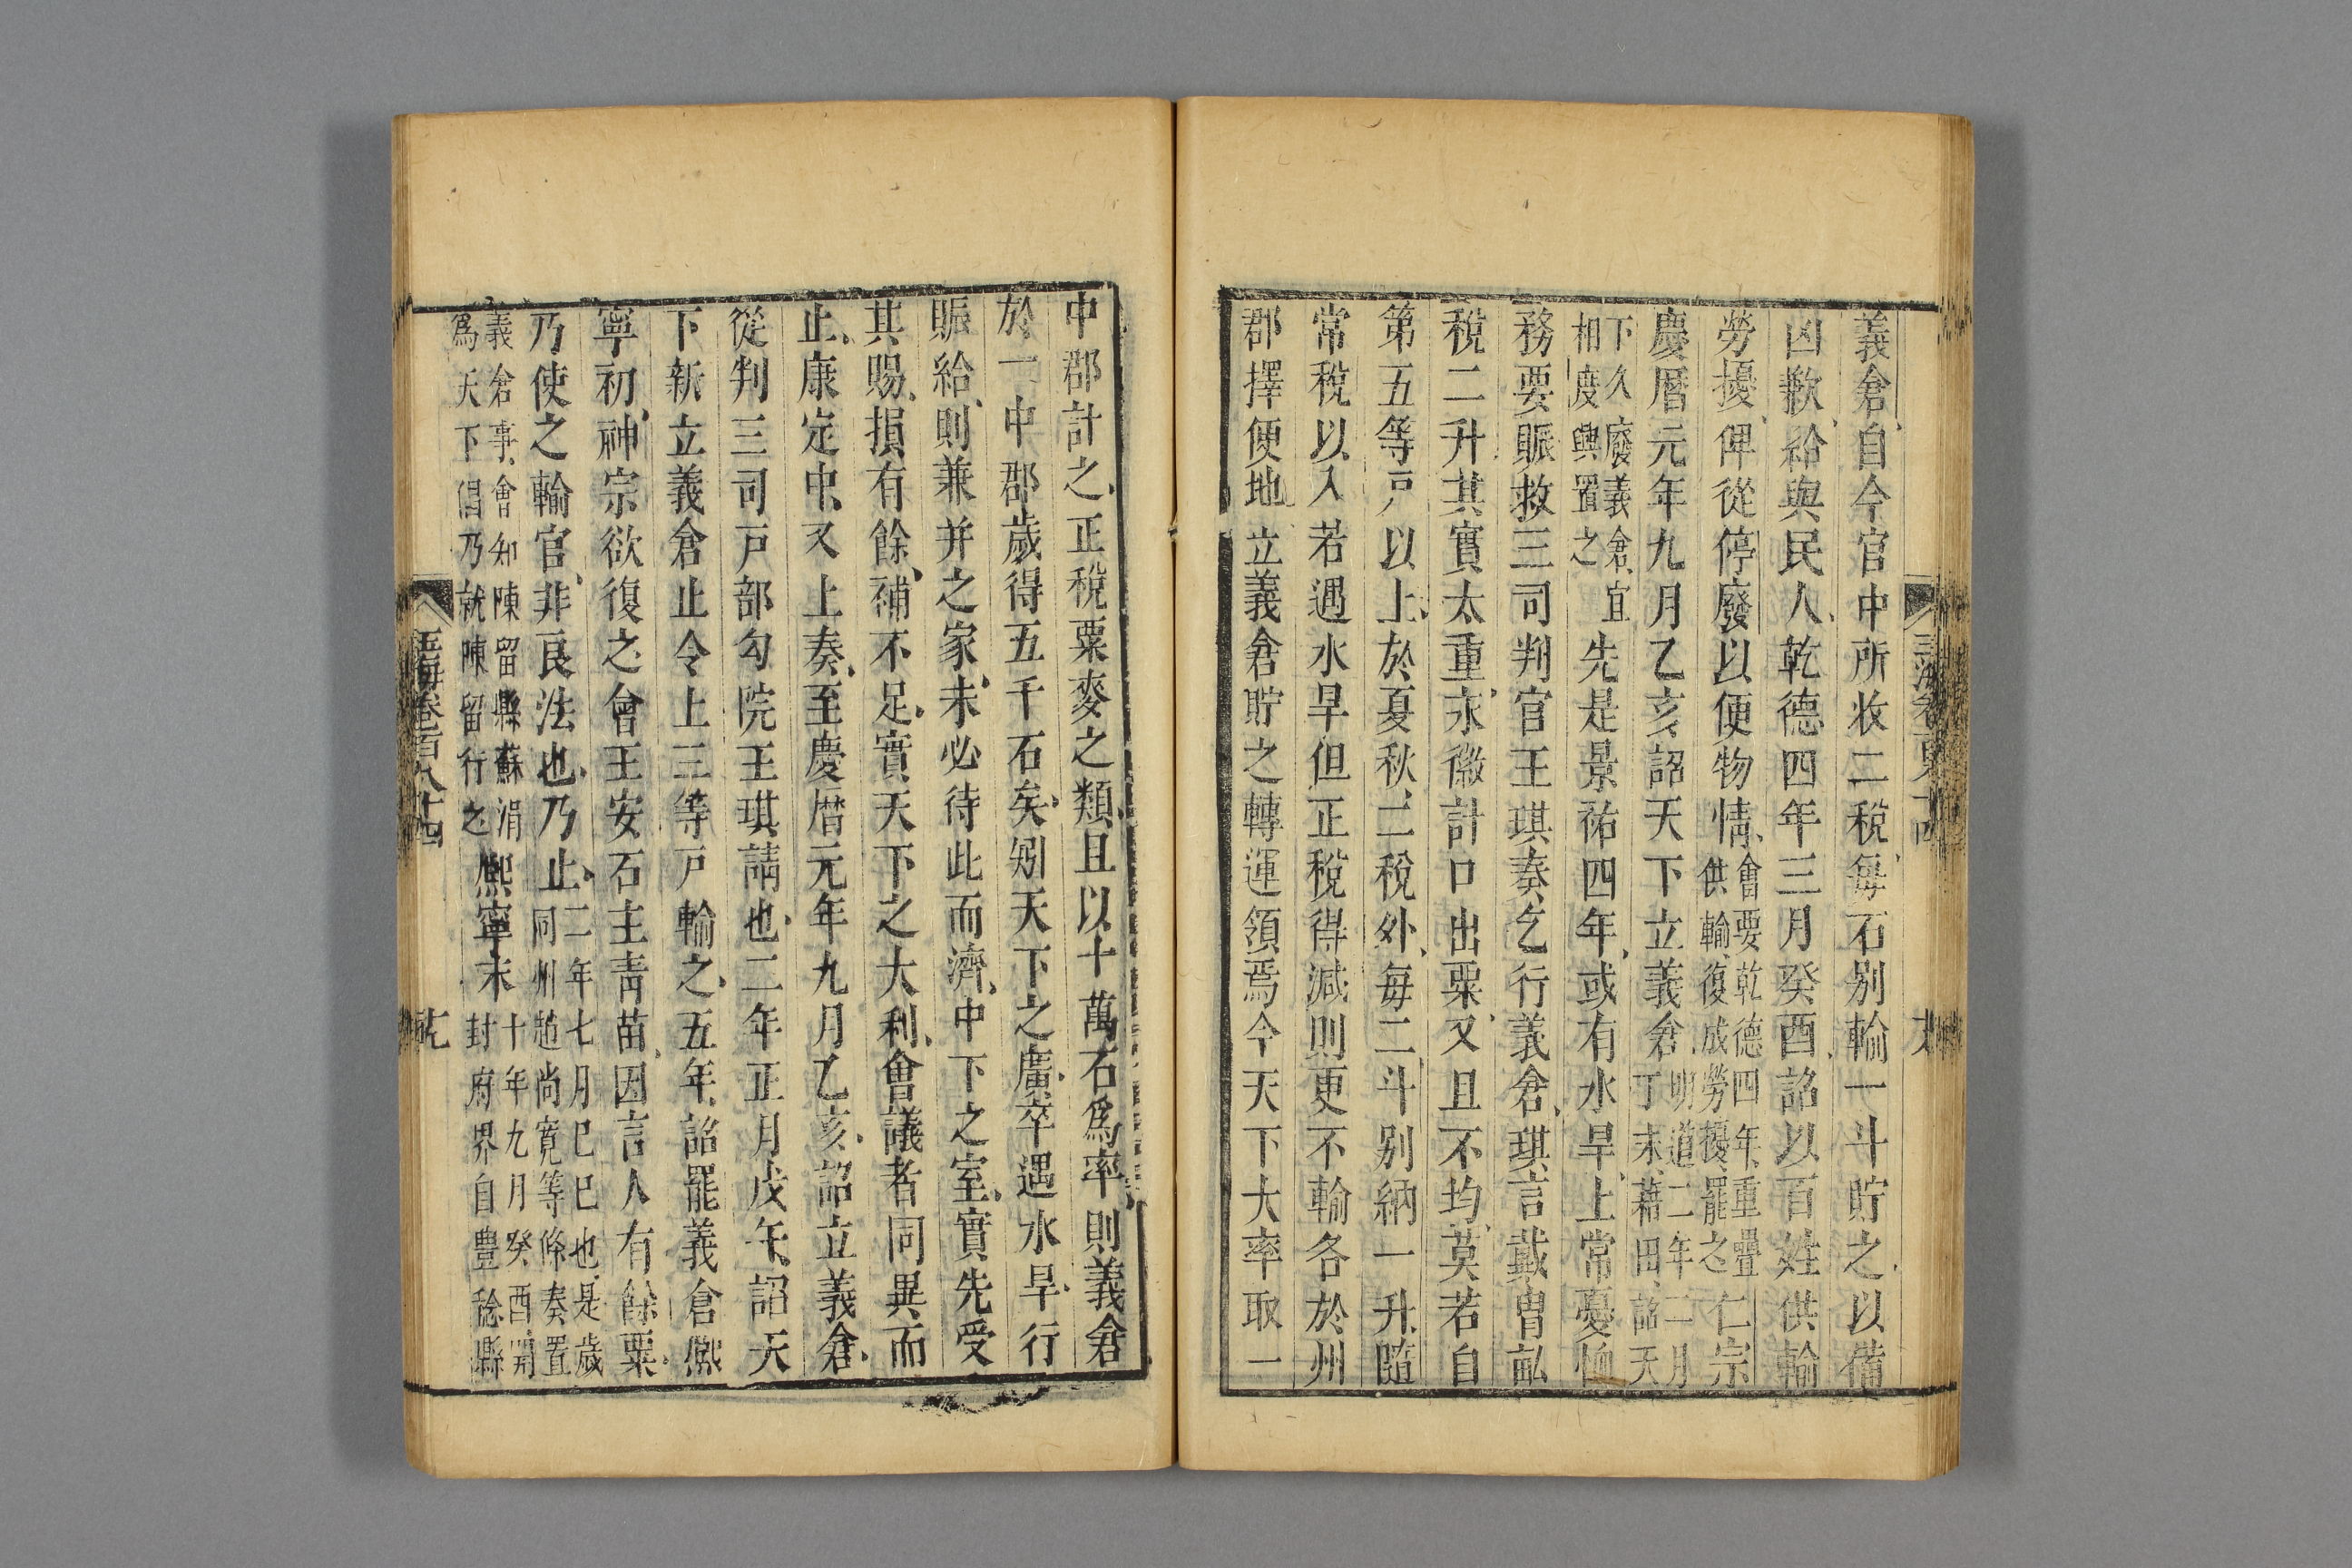 義倉自今官中所收二稅每石别輸一斗貯之以備
凶歉給與民人乾德四年三月癸酉詔以百姓供輸
勞擾俾從停廢以便物情會要乾德四年重疊供輸復成勞擾罷之仁宗
慶曆元年九月乙亥詔天下立義倉明道二年二月丁未藉田詔天
下久廢義倉宜相度興置之先是景祐四年或有水旱上常憂恤
務要賑救三司判官王琪奏乞行義倉琪言戴胄畝
稅二升其實太重永徽計口出粟又且不均莫若自
第五等戸以上於夏秋二稅外每二斗别納一升隨
常稅以入若遇水旱但正稅得減則更不輸各於州
郡擇便地立義倉貯之轉運領焉今天下大率取一
中郡計之正稅粟麥之類且以十萬石爲率則義倉
於一中郡歲得五千石矣矧天下之廣卒遇水旱行
賑給則兼并之家未必待此而濟中下之室實先受
其賜損有餘補不足實天下之大利會議者同異而
止康定中又上奏至慶曆元年九月乙亥詔立義倉
從判三司戸部勾院王琪請也二年正月戊午詔天
下新立義倉止令上三等戸輸之五年詔罷義倉熈
寧初神宗欲復之會王安石主青苗因言人有餘粟
乃使之輸官非良法也乃止二年七月己巳也是歲同州趙尚寛等條奏置
義倉事會知陳留縣蘇涓爲天下倡乃就陳留行之熈寧末十年九月癸酉開封府界自豐稔縣
玉海卷百八十四